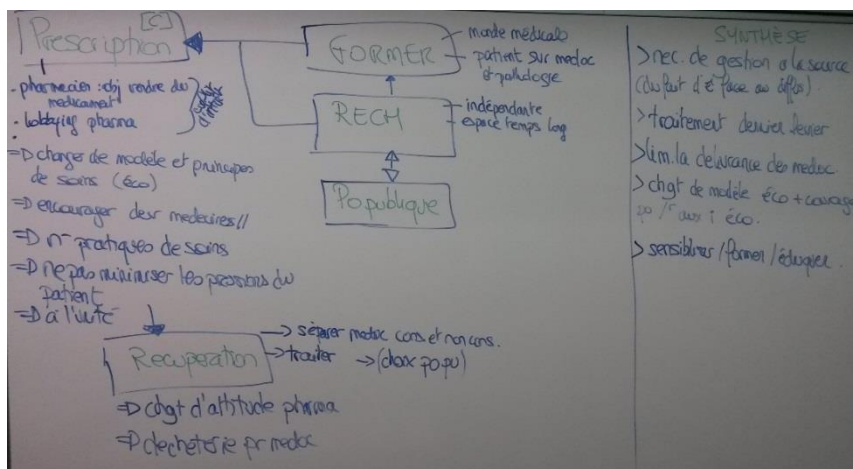 [C]
Prescription
. pharmacien : obj vendre du
medicament
. lobbying pharma
=> changer de modèle et principes
de soins (éco)
=> encourager des medecines //
=> pratiques de soins
=> ne pas minimiser les pressions du
patient
=> à l'unité
FORMER
monde médicale
patient sur medoc
et pathologie
RECH
indépendante
espace temps long
Po publique
Recuperation
-> séparer medoc cons et non cons.
-> traiter -> (choix po pu)
=> chgt d'attitude pharma
=> decheterie pr medoc
SYNTHÈSE
> nec. de gestion à la source
(du fait d'ê face au diffus)
> traitement dernier levier
> lim. la délivrance des medoc
> chgt de modèle éco + courage
po / aux i éco.
> sensibiliser / former / éduquer.